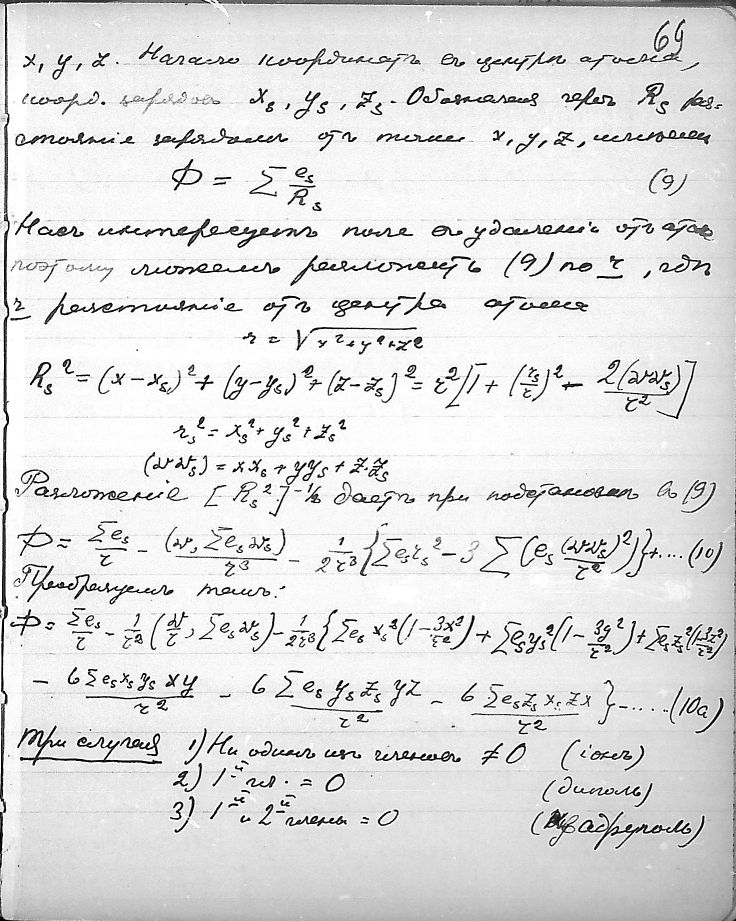 69
x, y, z. Начало координатъ въ центрѣ атома,
коорд. зарядовъ x_s, y_s, z_s. Обозначая черезъ R_s раз-
стояніе зарядовъ отъ точки x, y, z, имѣемъ
Φ = ∑ e_s/R_s (9)
Насъ интересуетъ поле въ удаленіи отъ атома
поэтому можемъ разложить (9) по r, гдѣ
r разстояніе отъ центра атома
r = √(x²+y²+z²)
R_s² = (x−x_s)² + (y−y_s)² + (z−z_s)² = r²[1 + (r_s/r)² − 2(𝔯𝔯_s)/r²]
r_s² = x_s² + y_s² + z_s²
(𝔯𝔯_s) = xx_s + yy_s + z·z_s
Разложеніе [R_s²]^(−1/2) даетъ при подстановкѣ въ (9)
Φ = ∑e_s/r − (𝔯, ∑e_s𝔯_s)/r³ − 1/2r³ {∑e_s r_s² − 3 ∑(e_s (𝔯𝔯_s)²/r²)} + .... (10)
Преобразуемъ такъ:
Φ = ∑e_s/r − 1/r² (𝔯/r, ∑e_s𝔯_s) − 1/2r³ {∑e_s x_s² (1−3x²/r²) + ∑e_s y_s² (1−3y²/r²) + ∑e_s z_s² (1−3z²/r²)
− 6∑e_s x_s y_s xy/r² − 6∑e_s y_s z_s yz/r² − 6∑e_s z_s x_s zx/r² } − ..... (10a)
Три случая 1) Ни одинъ изъ членовъ ≠ 0 (іонъ)
2) 1й чл. = 0 (диполь)
3) 1й и 2й члены = 0 (квадруполь)